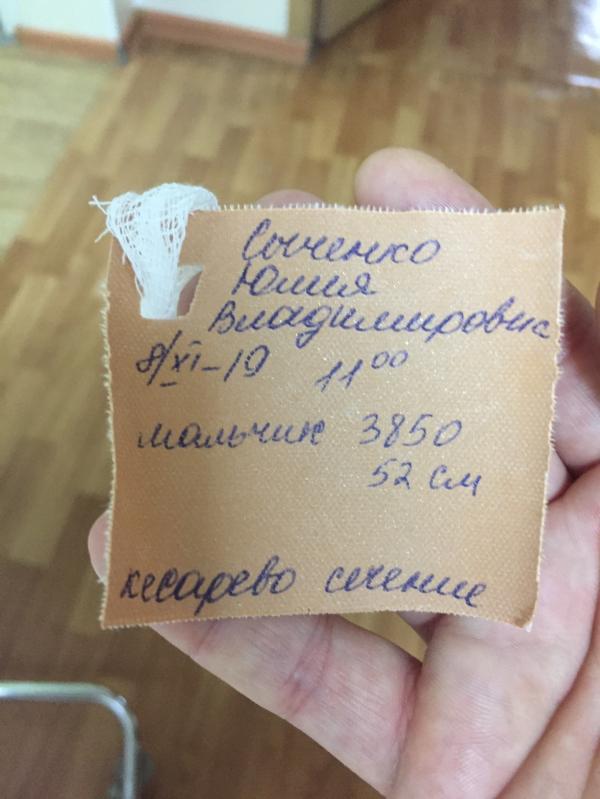 Сыченко
Юлия
Владимировна
8/XI-19 11⁰⁰
мальчик 3850
52 см
кесарево сечение